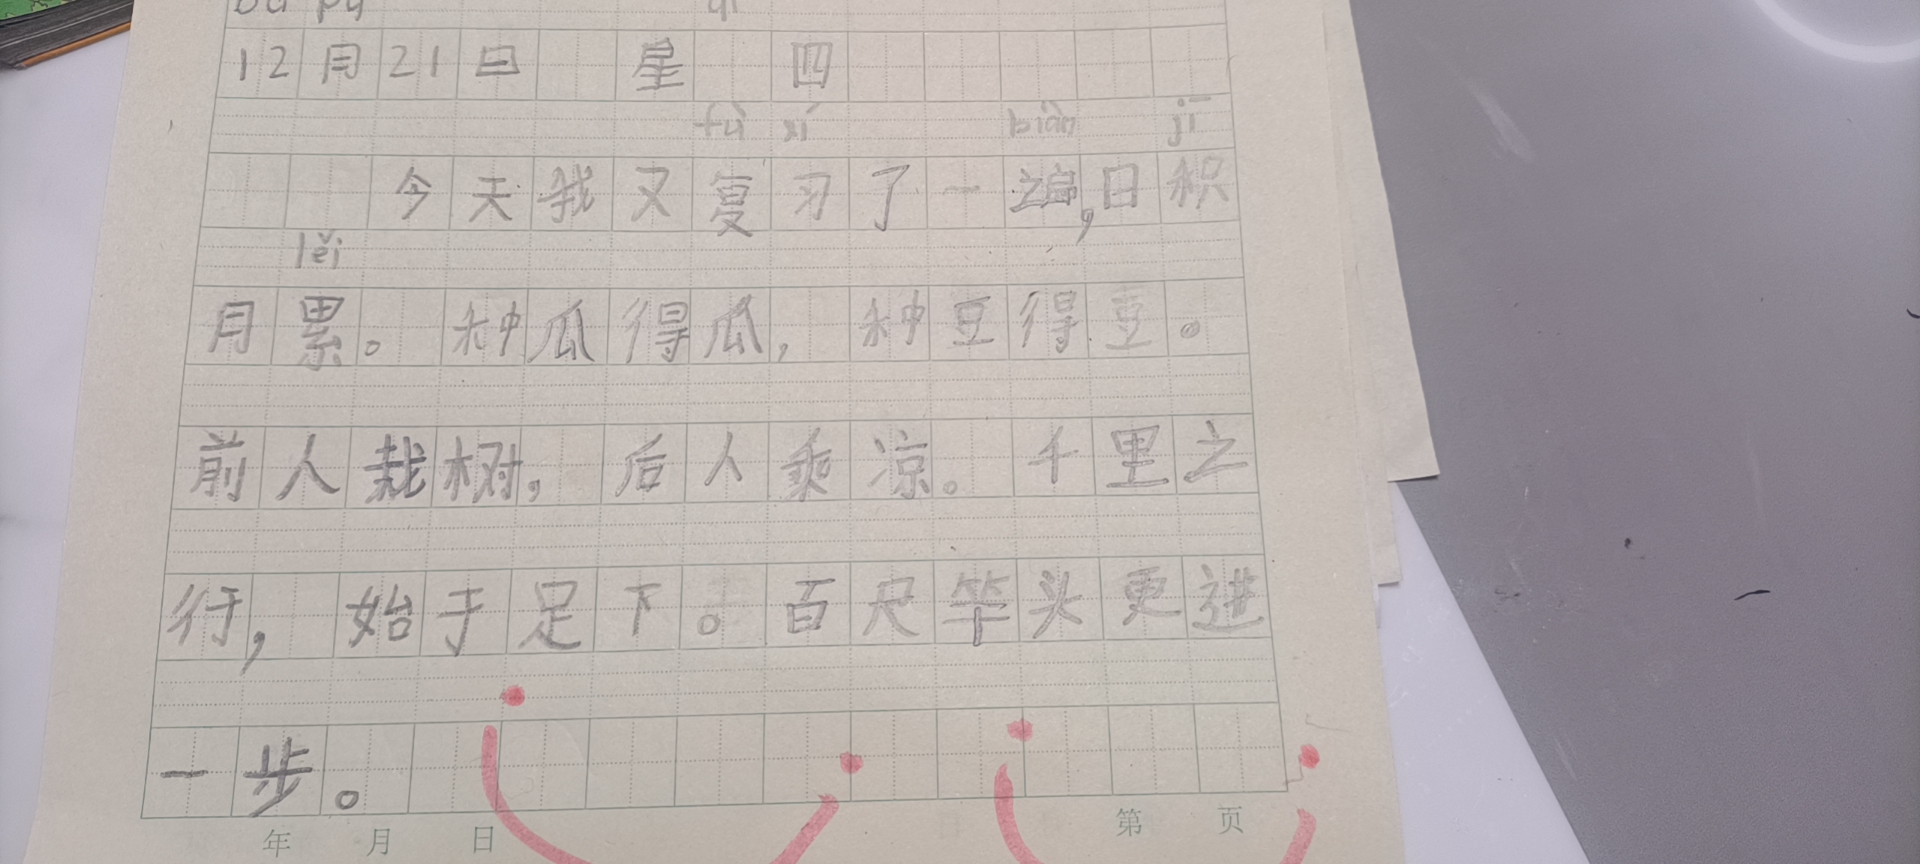 12月21日 星 四
fù xí biàn jī
今天我又复习了一遍,日积
lěi
月累。种瓜得瓜,种豆得豆。
前人栽树,后人乘凉。千里之
行,始于足下。百尺竿头更进
一步。
年 月 日 第 页